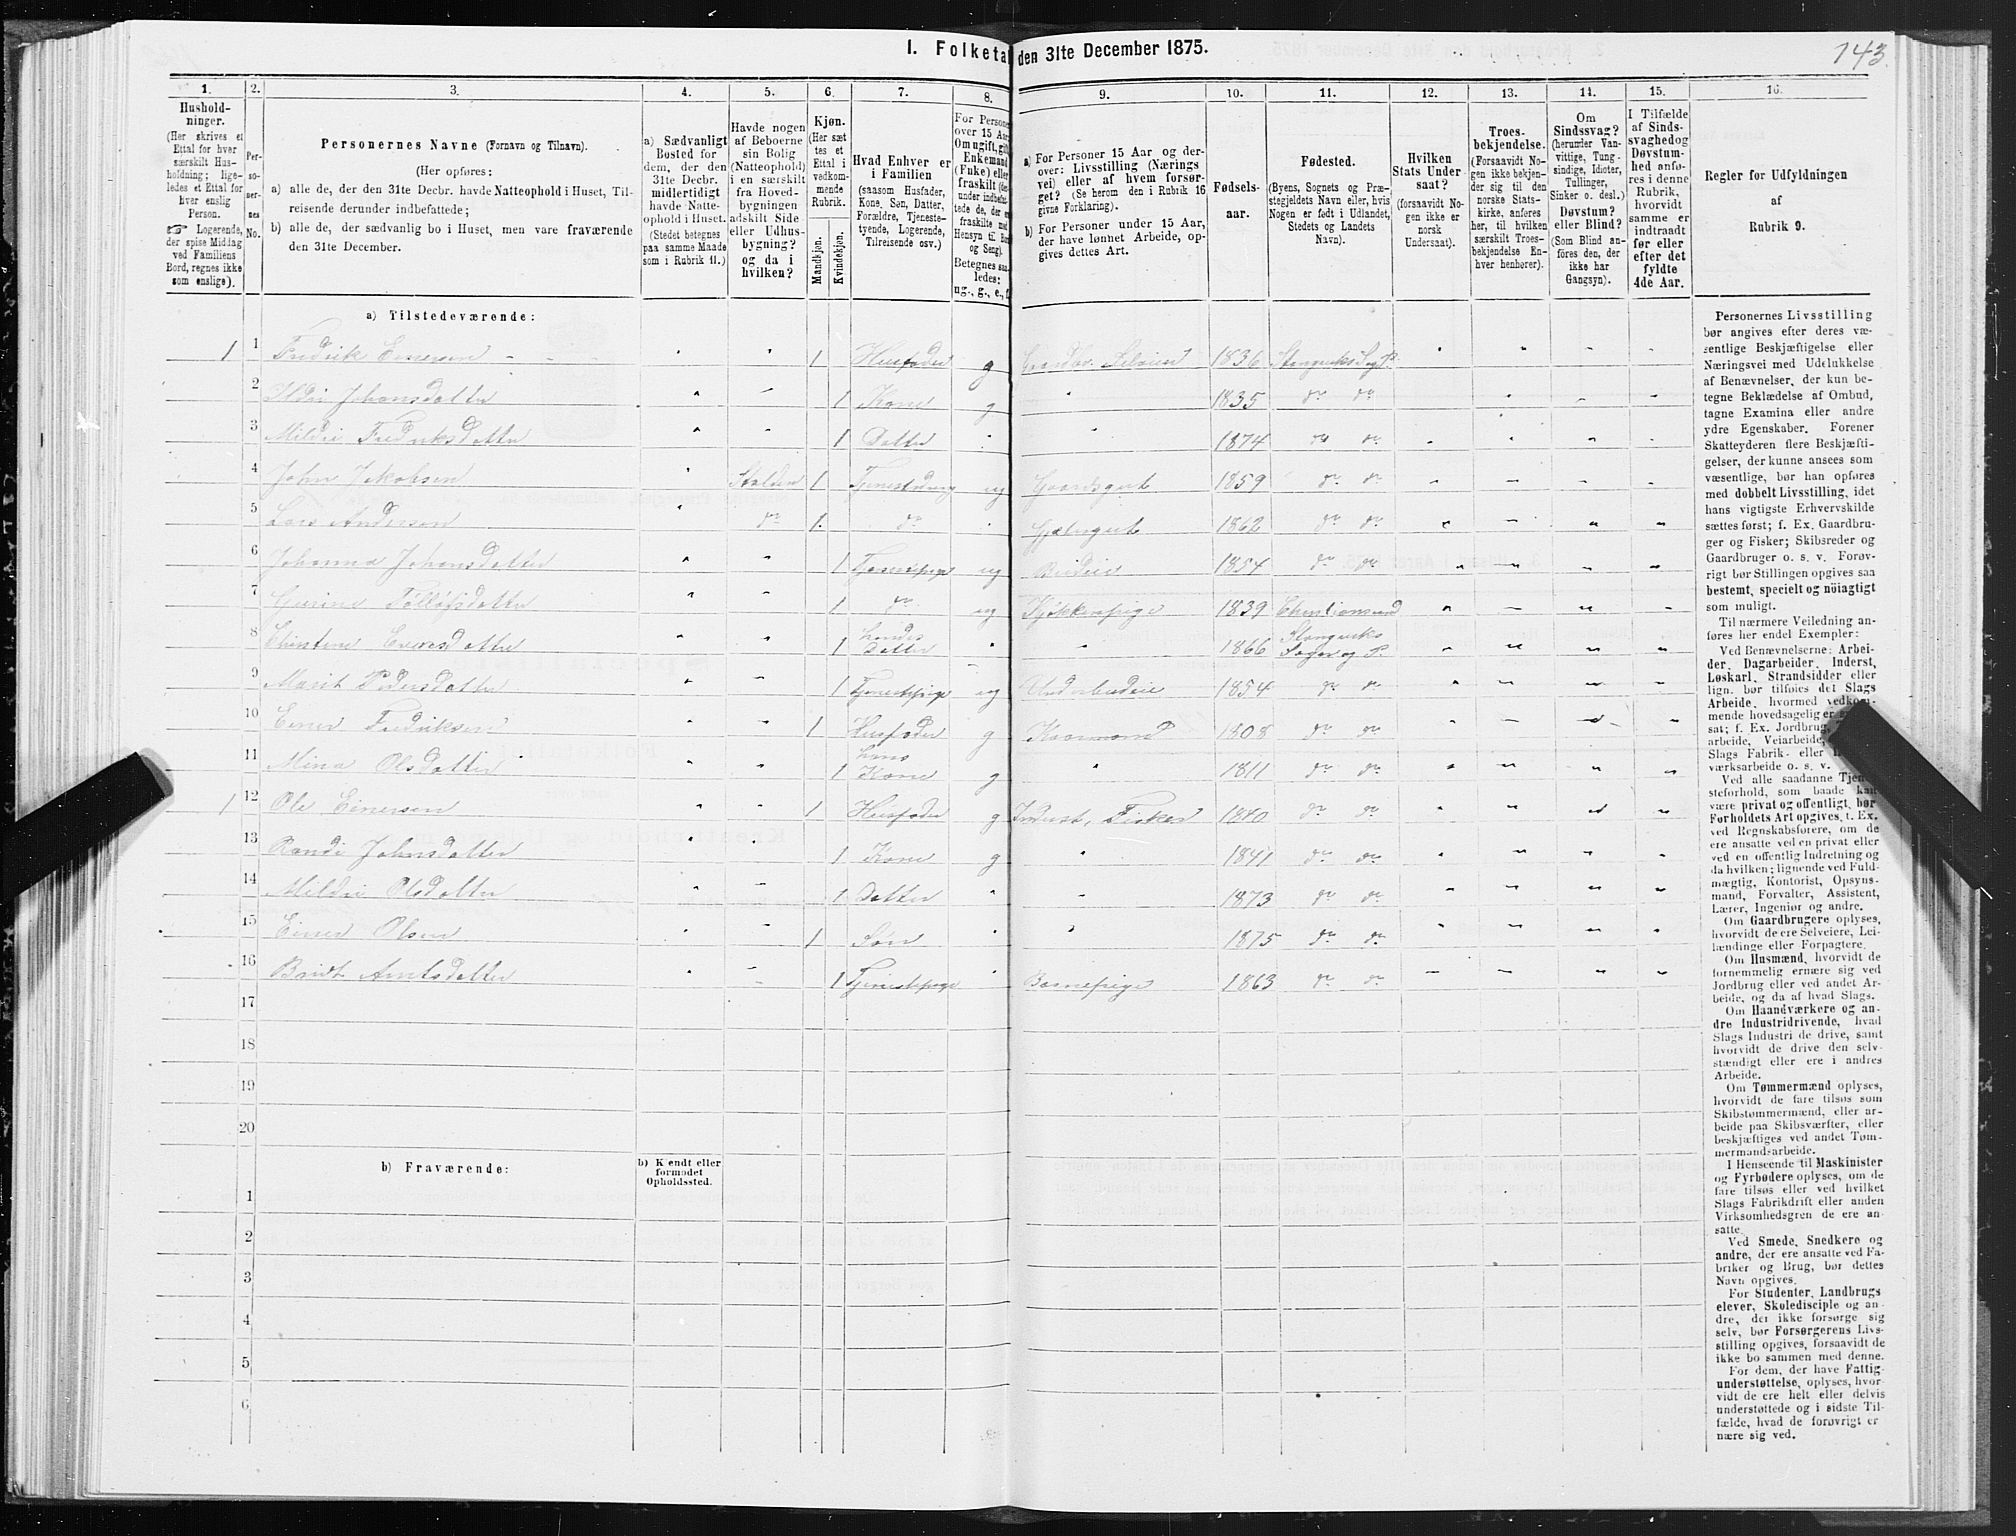 143
1. Folketal den 31te December 1875.
1. 2. 3. 4. 5. 6. 7. 8. 9. 10. 11. 12. 13. 14. 15. 16.
Hushold-
ninger.
(Her skrives et
Ettal for hver
særskilt Hus-
holdning; lige-
ledes et Ettal for
hver enslig
Person.
☞ Logerende,
der spise Middag
ved Familiens
Bord, regnes ikke
som enslige).
Per-
so-
ner-
nes
No.
Personernes Navne (Fornavn og Tilnavn).
(Her opføres:
a) alle de, der den 31te Decbr. havde Natteophold i Huset, Til-
reisende derunder indbefattede;
b) alle de, der sædvanlig bo i Huset, men vare fraværende
den 31te December.
a) Sædvanligt
Bosted for
dem, der den
31te Decbr.
midlertidigt
havde Natte-
ophold i Huset.
(Stedet betegnes
paa samme Maade
som i Rubrik 11.)
Havde nogen
af Beboerne
sin Bolig
(Natteophold)
i en særskilt
fra Hoved-
bygningen
adskilt Side-
eller Udhus-
bygning?
og da i
hvilken?
Kjøn.
(Her sæt-
tes et
Ettal i
vedkom-
mende
Rubrik.
Mandkjøn.
Kvindekjøn.
Hvad Enhver er
i Familien
(saasom Husfader,
Kone, Søn, Datter,
Forældre, Tjeneste-
tyende, Logerende,
Tilreisende osv.)
For Personer
over 15 Aar:
Om ugift, gift,
Enkemand
(Enke) eller
fraskilt
Betegnes saa-
ledes:
ug., g., e., f.
a) For Personer 15 Aar og der-
over: Livsstilling (Nærings-
vei) eller af hvem forsør-
get? (Se herom den i Rubrik 16
givne Forklaring).
b) For Personer under 15 Aar,
der have lønnet Arbeide, op-
gives dettes Art.
Fødsels-
aar.
Fødested.
(Byens, Sognets og Præ-
stegjeldets Navn eller, hvis
Nogen er født i Udlandet,
Stedets og Landets
Navn).
Hvilken
Stats Under-
saat?
(forsaavidt No-
gen ikke er
norsk
Undersaat).
Troes-
bekjendelse.
(Forsaavidt No-
gen ikke bekjen-
der sig til den
norske Stats-
kirke, anføres
her, til hvilken
særskilt Troes-
bekjendelse En-
hver henhører).
Om
Sindssvag?
(herunder Van-
vittige, Tung-
sindige, Idioter,
Tullinger,
Sinker o. desl.)
Døvstum?
eller Blind?
(Som Blind an-
føres den, der
ikke har
Gangsyn).
I Tilfælde
af Sinds-
svaghed og
Døvstum-
hed anfø-
res i denne
Rubrik,
hvorvidt
samme er
indtraadt
før eller
efter det
fyldte
4de Aar.
Regler for Udfyldningen
af
Rubrik 9.
a) Tilstedeværende:
1 1 Fredrik Einersen 1 Husfader g Gaardbr. Selveier 1836 Stangviks Sog. P.
2 Ildri Johansdatter 1 Kone g 1835 do do
3 Mildri Fredriksdatter 1 Datter 1874 do do
4 John Jakobsen Stalden 1 Tjenestedreng ug Gaardsgut 1859 do do
5 Lars Andersen do 1 do Gjætergut 1862 do do
6 Johanna Johansdatter 1 Tjenestepige ug Budeie 1854 do do
7 Gurine Tollofsdatter 1 do ug Kjøkkenpige 1839 Christiansund
8 Christine Einersdatter 1 Datter 1866 Stangviks Sogn og P.
9 Marit Pedersdatter 1 Tjenestepige ug Underbudeie 1854 do do
10 Einer Fredriksen 1 Husfader g Kaarmand 1808 do do
11 Mina Olsdatter 1 hans Kone g 1811 do do
1 12 Ole Einersen 1 Husfader g Inderst, Fisker 1840 do do
13 Randi Johnsdatter 1 Kone g 1841 do do
14 Mildri Olsdatter 1 Datter 1873 do do
15 Einer Olsen 1 Søn 1875 do do
16 Bridt Arntsdatter 1 Tjenestepige Barnepige 1863 do do
17
18
19
20
b) Fraværende:
b) Kjendt eller
formodet
Opholdssted.
1
2
3
4
5
6
Personernes Livsstilling
bør angives efter deres væ-
sentlige Beskjæftigelse eller
Næringsvei med Udelukkelse
af Benævnelser, der kun be-
tegne Beklædelse af Ombud,
tagne Examina eller andre
ydre Egenskaber. Forener
Skatteyderen flere Beskjæfti-
gelser, der kunne ansees som
væsentlige, bør han opføres
med dobbelt Livsstilling, idet
hans vigtigste Erhvervskilde
sættes først; f. Ex. Gaardbru-
ger og Fisker; Skibsreder og
Gaardbruger o. s. v. Forøv-
rigt bør Stillingen opgives saa
bestemt, specielt og nöiagtigt
som muligt.
Til nærmere Veiledning an-
føres her endel Exempler:
Ved Benævnelserne: Arbei-
der, Dagarbeider, Inderst,
Løskarl, Strandsidder eller
lign. bør tilføies det Slags
Arbeide, hvormed vedkom-
mende hovedsagelig er
sat; f. Ex. Jordbrug,
arbeide, Veiarbeide,
Slags Fabrik- eller
værksarbeide o. s. v.
Ved alle saadanne Tjene-
steforhold, som baade kan
være privat og offentligt, bør
Forholdets Art opgives, t. Ex.
ved Regnskabsførere, om de
ere ansatte ved en privat eller
ved en offentlig Indretning og
da hvilken; lignende ved Fuld-
mægtig, Kontorist, Opsyns-
mand, Forvalter, Assistent,
Lærer, Ingeniør og andre.
Om Gaardbrugere oplyses,
hvorvidt de ere Selveiere, Lei-
lændinge eller Forpagtere.
Om Husmænd, hvorvidt de
fornemmelig ernære sig ved
Jordbrug eller ved andet Ar-
beide, og da af hvad Slags.
Om Haandværkere og an-
dre Industridrivende, hvad
Slags Industri de drive, samt
hvorvidt de drive den selv-
stændigt eller ere i andres
Arbeide.
Om Tømmermænd oplyses,
hvorvidt de fare tilsøs som
Skibstømmermænd, eller ar-
beide paa Skibsværfter, eller
beskjæftiges ved andet Tøm-
mermandsarbeide.
I Henseende til Maskinister
og Fyrbødere oplyses, om de
fare tilsøs eller ved hvilket
Slags Fabrikdrift eller anden
Virksomhedsgren de ere an-
satte.
Ved Smede, Snedkere og
andre, der ere ansatte ved Fa-
briker og Brug, bør dettes
Navn opgives.
For Studenter, Landbrugs-
elever, Skoledisciple og an-
dre, der ikke forsørge sig
selv, bør Forsørgerens Livs-
stilling opgives, forsaavidt de
ikke bo sammen med denne.
For dem, der have Fattig-
understøttelse, oplyses, hvor-
vidt de ere helt eller delvis
understøttede og i sidste Til-
fælde, hvad de forøvrigt er-
nære sig ved.